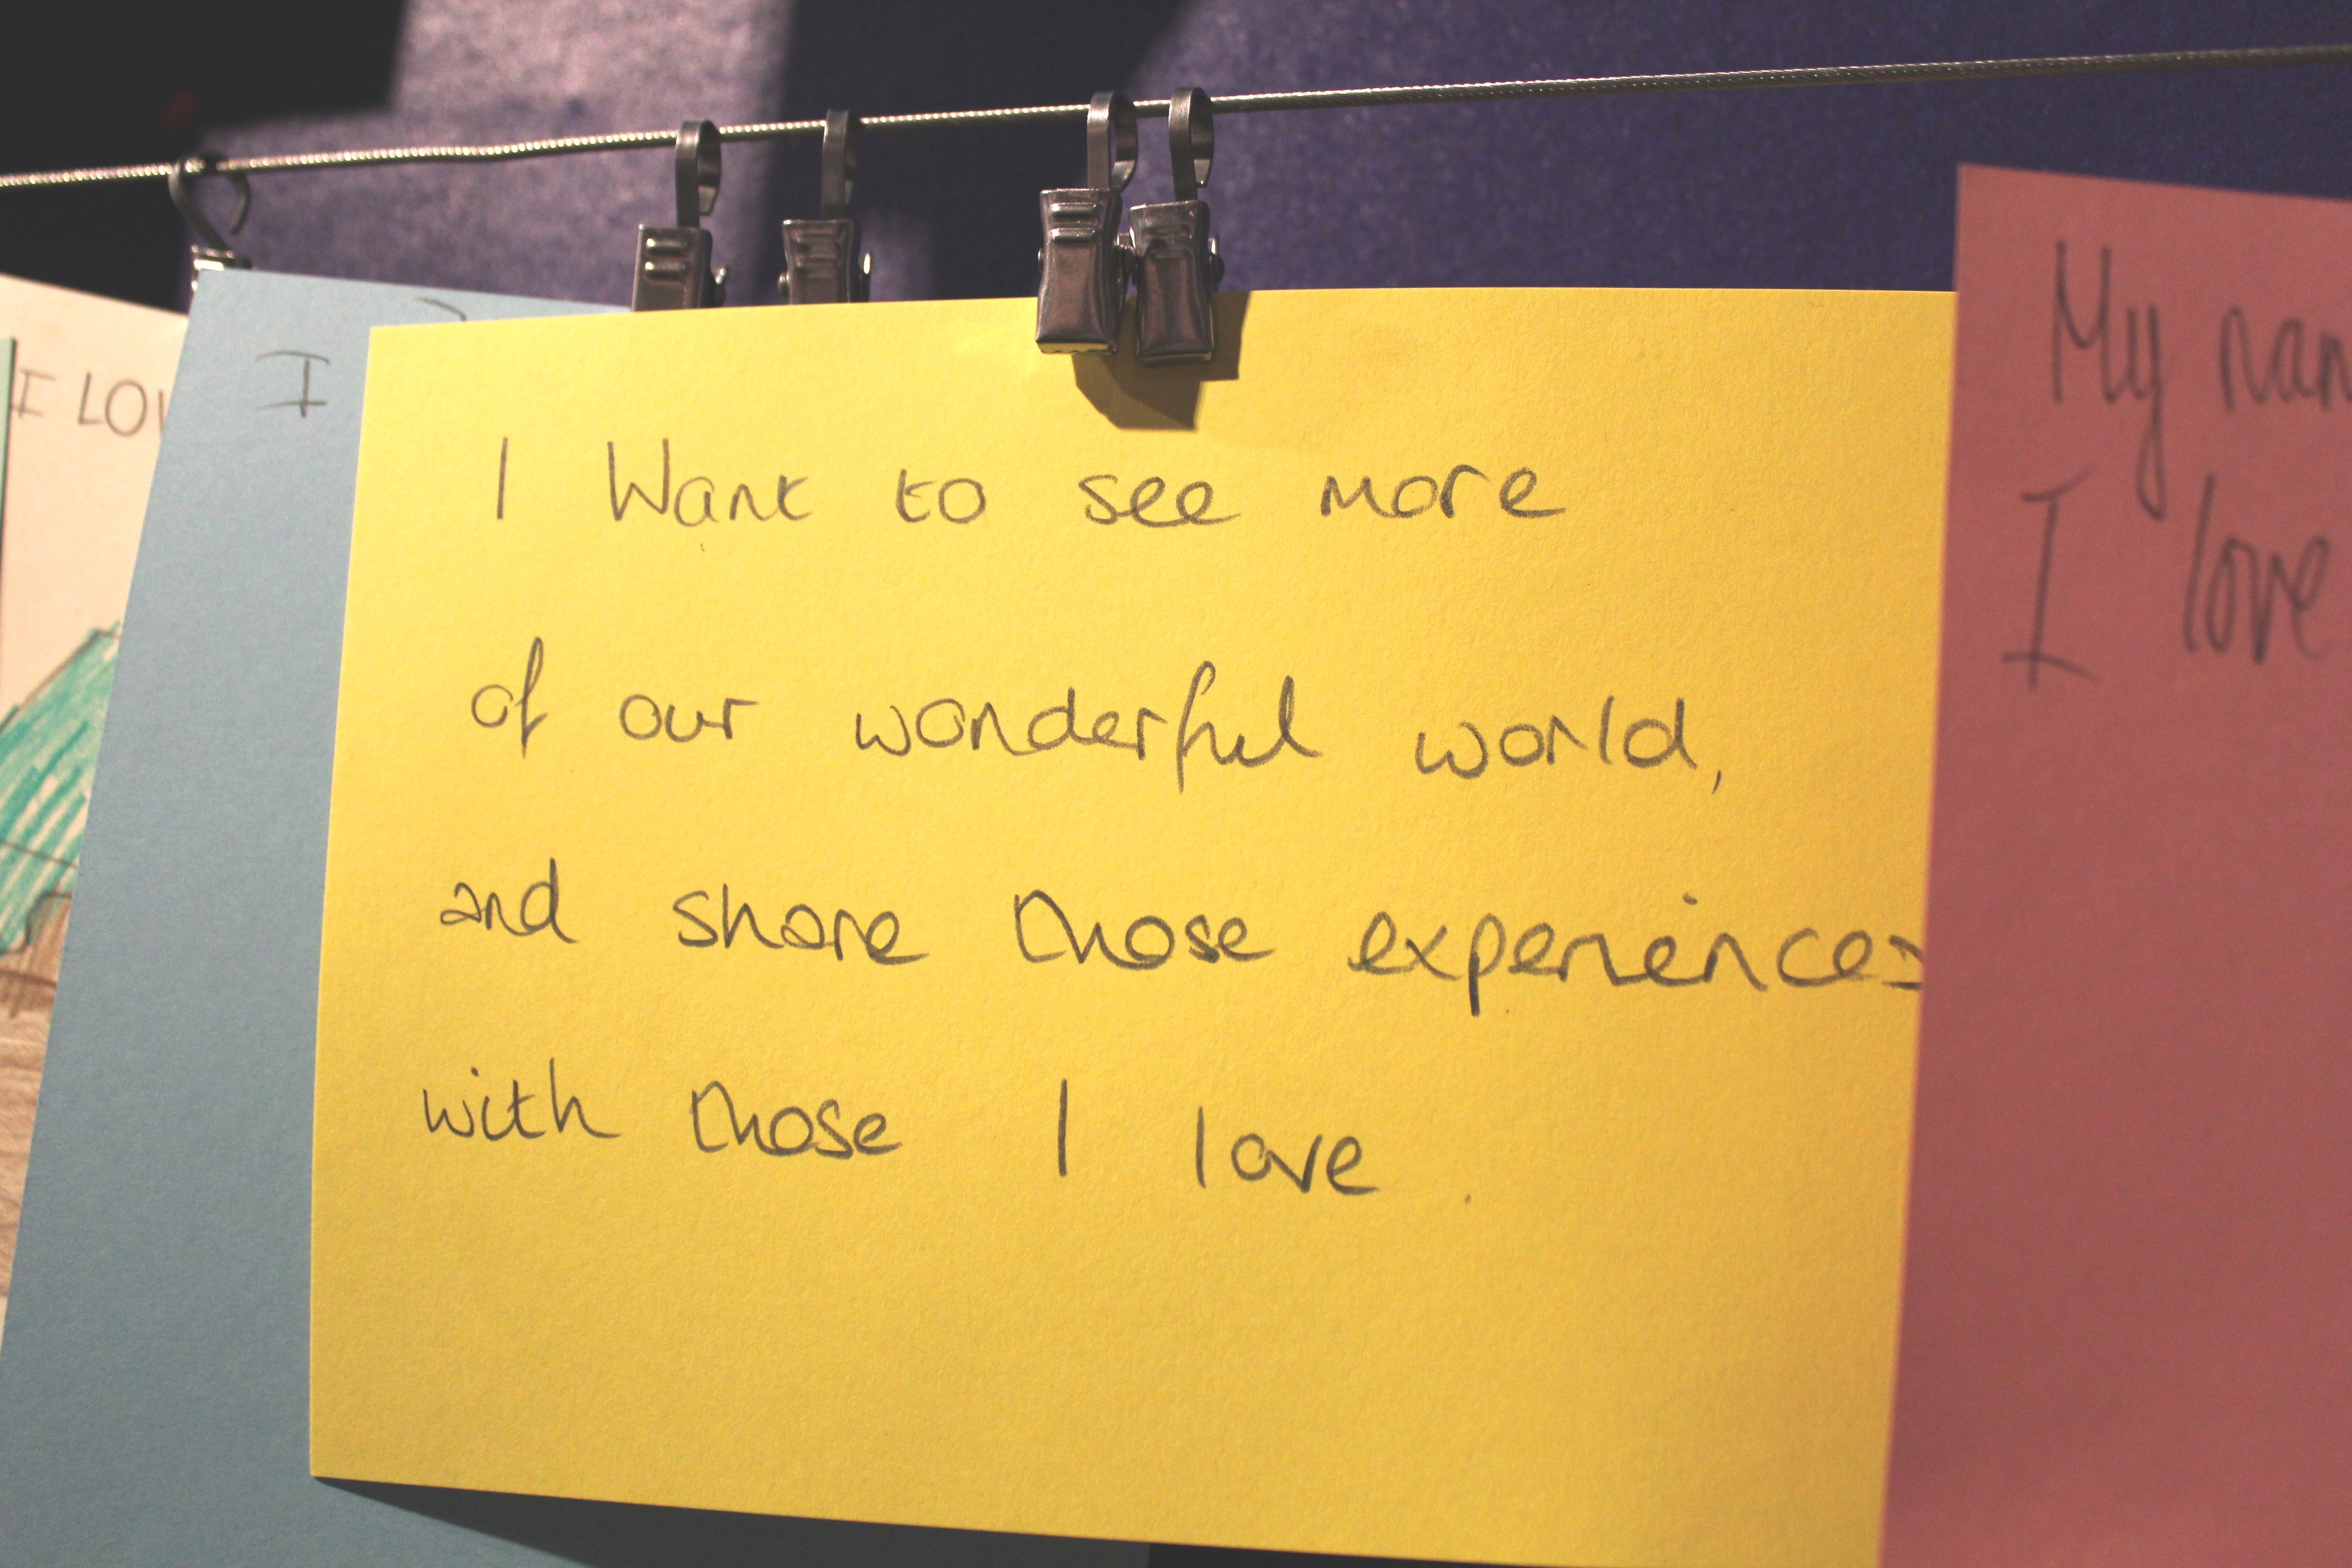 I LOV
I
I Want to see more
of our wonderful world,
and share those experiences
with those I love.
My nam
I love